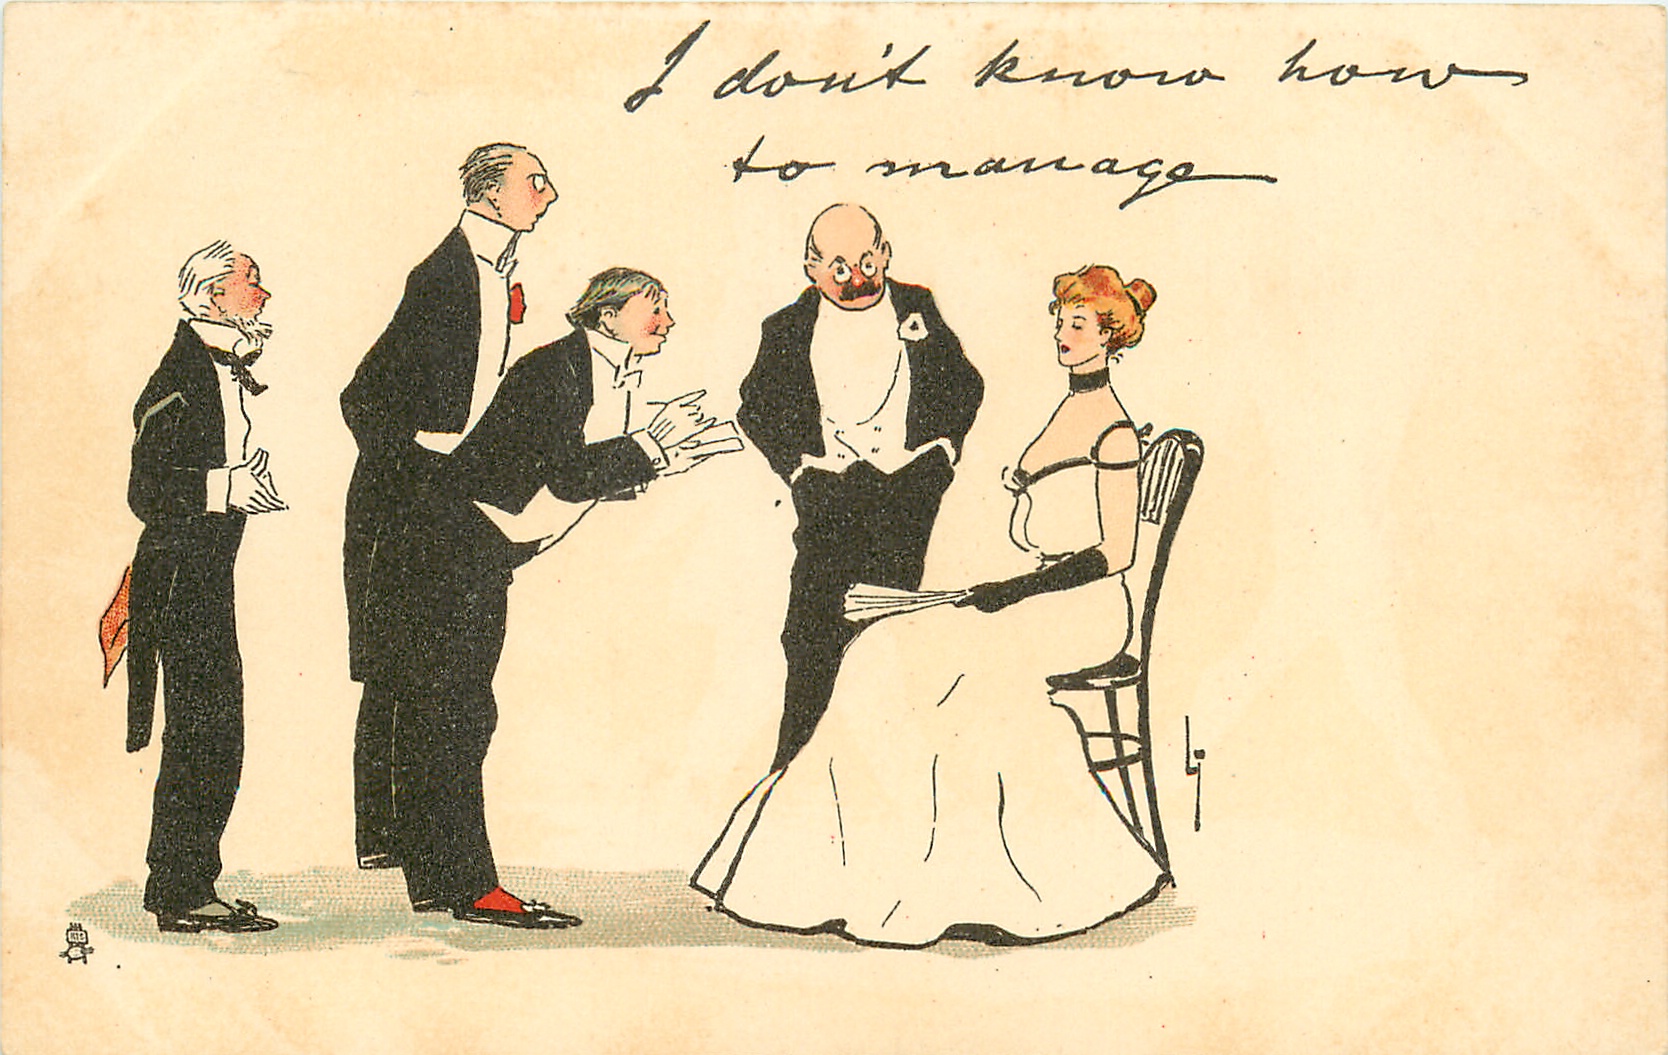 I don't know how
to manage